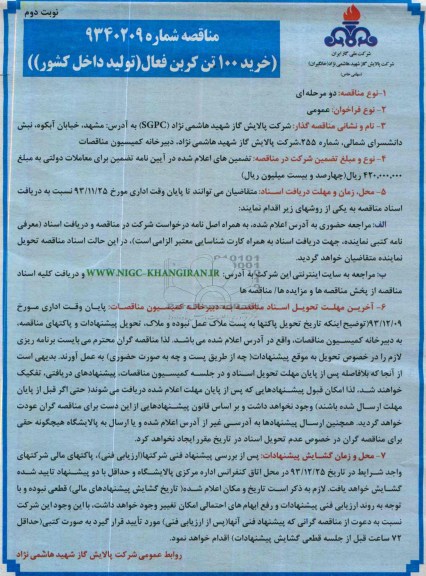 نوبت دوم
مناقصه شماره ۹۳۴۰۲۰۹
(خرید ۱۰۰ تن کربن فعال(تولید داخل کشور))
شرکت ملی گاز ایران
شرکت پالایش گاز شهید هاشمی نژاد (خانگیران)
(سهامی خاص)
۱-نوع مناقصه: دو مرحله ای
۲- نوع فراخوان: عمومی
۳- نام و نشانی مناقصه گذار: شرکت پالایش گاز شهید هاشمی نژاد (SGPC) به آدرس: مشهد، خیابان آبکوه، نبش
دانشسرای شمالی، شماره ۲۵۵،شرکت پالایش گاز شهید هاشمی نژاد، دبیرخانه کمیسیون مناقصات
۴- نوع و مبلغ تضمین شرکت در مناقصه: تضمین های اعلام شده در آیین نامه تضمین برای معاملات دولتی به مبلغ
۴۲۰,۰۰۰,۰۰۰ ریال(چهارصد و بیست میلیون ریال)
۵- محل، زمان و مهلت دریافت اسناد: متقاضیان می توانند تا پایان وقت اداری مورخ ۹۳/۱۱/۲۵ نسبت به دریافت
اسناد مناقصه به یکی از روشهای زیر اقدام نمایند:
الف: مراجعه حضوری به آدرس اعلام شده، به همراه اصل نامه درخواست شرکت در مناقصه و دریافت اسناد (معرفی
نامه کتبی نماینده، جهت دریافت اسناد به همراه کارت شناسایی معتبر الزامی است)، در این حالت اسناد مناقصه تحویل
نماینده متقاضیان خواهد گردید.
ب: مراجعه به سایت اینترنتی این شرکت به آدرس: WWW.NIGC-KHANGIRAN.IR و دریافت کلیه اسناد
مناقصه از بخش مناقصه ها و مزایده ها/ مناقصه ها
۶- آخرین مهلت تحویل اسناد مناقصه به دبیرخانه کمیسیون مناقصات: پایان وقت اداری مورخ
۹۳/۱۲/۰۹(توضیح اینکه تاریخ تحویل پاکتها به پست ملاک عمل نبوده و ملاک، تحویل پیشنهادات و پاکتهای مناقصه،
به دبیرخانه کمیسیون مناقصات، واقع در آدرس اعلام شده می باشد. لذا مناقصه گران محترم می بایست برنامه ریزی
لازم را در خصوص تحویل به موقع پیشنهادات( چه از طریق پست و چه به صورت حضوری) به عمل آورند. بدیهی است
از آنجا که بلافاصله پس از پایان مهلت تحویل اسناد و در جلسه کمیسیون مناقصات، پیشنهادهای دریافتی، تفکیک
خواهند شد. لذا امکان قبول پیشنهادهایی که پس از پایان مهلت اعلام شده دریافت می شوند( حتی اگر قبل از پایان
مهلت ارسال شده باشند) وجود نخواهد داشت و بر اساس قانون پیشنهادهایی از این دست برای مناقصه گران عودت
خواهد گردید. همچنین ارسال پیشنهادها به آدرسی غیر از آدرس اعلام شده و یا ارسال به پالایشگاه هیچگونه حقی
برای مناقصه گران در خصوص عدم تحویل اسناد در تاریخ مقرر ایجاد نخواهد کرد.
۷- محل و زمان گشایش پیشنهادات: پس از بررسی پیشنهاد فنی شرکتها(ارزیابی فنی)، پاکتهای مالی شرکتهای
واجد شرایط در تاریخ ۹۳/۱۲/۲۵ در محل اتاق کنفرانس اداره مرکزی پالایشگاه و حداقل با دو پیشنهاد تایید شده
گشایش خواهد یافت. لازم به ذکر است تاریخ و مکان اعلام شده( تاریخ گشایش پیشنهادهای مالی) قطعی نبوده و با
توجه به روند ارزیابی فنی پیشنهادات و رفع ابهام های احتمالی امکان تغییر وجود خواهد داشت، با این وجود این شرکت
نسبت به دعوت از مناقصه گرانی که پیشنهاد فنی آنها(پس از ارزیابی فنی) مورد تأیید قرار گیرد به صورت کتبی(حداقل
۷۲ ساعت قبل از جلسه قطعی گشایش پیشنهادات) اقدام خواهد نمود.
روابط عمومی شرکت پالایش گاز شهید هاشمی نژاد